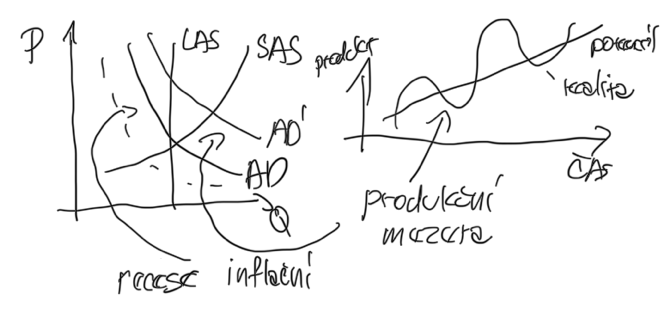 P
LAS
SAS
AD'
AD
Q
recese
inflační
produkt
potenciál
realita
ČAS
produkční
mezera